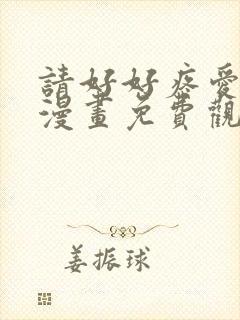 請好好疼愛
漫畫免費觀
姜振球